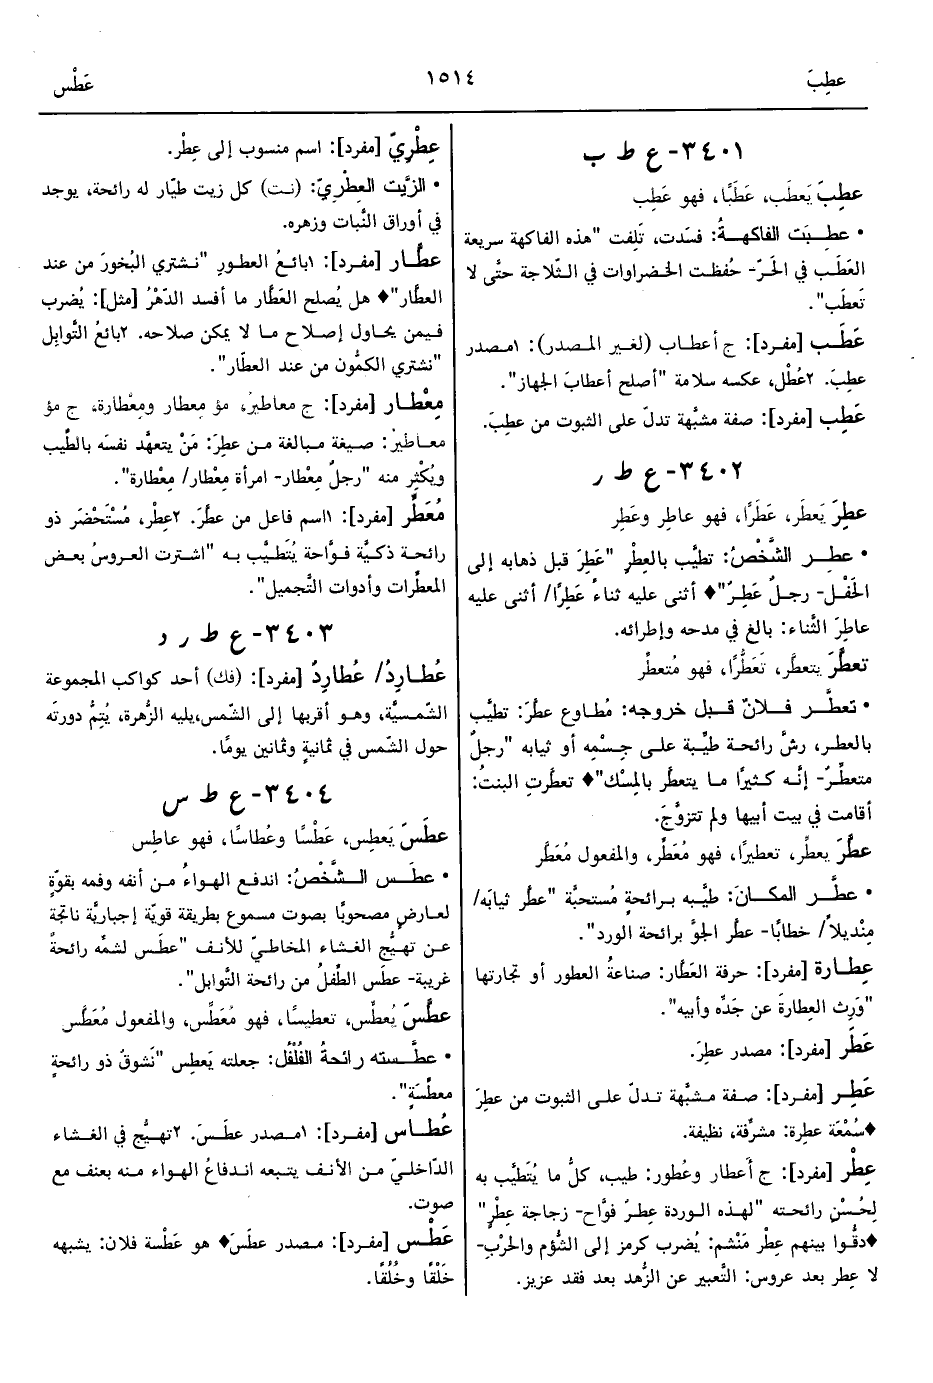 عطِبَ
١٥١٤
عَطْس
٣٤٠١- ع ط ب
عطِبَ يَعطَب، عَطَبًا، فهو عَطِب
• عطِبَت الفاكهةُ: فسَدت، تَلِفت "هذه الفاكهة سريعة
العَطَب في الحَرّ- حُفظت الخضراوات في الثّلاجة حتَّى لا
تَعطَب".
عَطَب [مفرد]: ج أعطاب (لغير المصدر): ١مصدر
عطِبَ. ٢عُطْل، عكسه سلامة "أصلح أعطابَ الجهاز".
عَطِب [مفرد]: صفة مشبَّهة تدلّ على الثبوت من عطِبَ.
٣٤٠٢- ع ط ر
عطِرَ يَعطَر، عَطَرًا، فهو عاطِر وعَطِر
• عطِر الشَّخْصُ: تطيَّب بالعِطْرِ "عَطِرَ قبل ذهابه إلى
الحَفْل- رجلٌ عَطِرٌ"♦ أثنى عليه ثناءً عَطِرًا/ أثنى عليه
عاطِرَ الثَّناء: بالغ في مدحه وإطرائه.
تعطَّرَ يتعطَّر، تَعَطُّرًا، فهو مُتعطِّر
• تعطَّر فلانٌ قبل خروجه: مُطاوع عطَّرَ: تطيَّب
بالعطر، رشَّ رائحة طيِّبة على جِسْمِه أو ثيابه "رجلٌ
متعطِّرٌ- إنَّه كثيرًا ما يتعطَّر بالمِسْك"♦ تعطَّرتِ البنتُ:
أقامت في بيت أبيها ولم تتزوَّجَ.
عطَّرَ يعطِّر، تعطيرًا، فهو مُعَطِّر، والمفعول مُعَطَّر
• عطَّر المكانَ: طيَّبه برائحةٍ مُستحبَّة "عطَّر ثيابَه/
مِنْديلاً/ خطابًا- عطَّر الجوَّ برائحة الورد".
عِطارة [مفرد]: حرفة العَطَّار: صناعةُ العطور أو تجارتها
"وَرِث العِطارةَ عن جَدِّه وأبيه".
عَطَر [مفرد]: مصدر عطِرَ.
عَطِر [مفرد]: صفة مشبَّهة تدلّ على الثبوت من عطِرَ
♦سُمْعَة عطِرة: مشرِّفة، نظيفة.
عِطْر [مفرد]: ج أعطار وعُطور: طيب، كلُّ ما يُتَطيَّب به
لِحُسْنِ رائحته "لهذه الوردة عِطرٌ فوَّاح- زجاجة عِطْرٍ"
♦دقُّوا بينهم عِطْر مَنْشم: يُضرب كرمز إلى الشُّؤم والحَرْبِ-
لا عِطر بعد عروس: التَّعبير عن الزُّهد بعد فقد عزيز.
عِطْريّ [مفرد]: اسم منسوب إلى عِطْر.
• الزَّيْت العِطْريّ: (نت) كل زيت طيَّار له رائحة، يوجد
في أوراق النَّبات وزهره.
عطَّار [مفرد]: ١بائعُ العطورِ "نشتري البُخورَ من عند
العطَّار"♦ هل يُصلح العَطَّار ما أفسد الدّهْرُ [مثل]: يُضرب
فيمن يحاول إصلاح ما لا يمكن صلاحه. ٢بائعُ التَّوابِل
"نشتري الكمُّون من عند العطَّار".
مِعْطار [مفرد]: ج معاطيرُ، مؤ مِعطار ومِعْطارة، ج مؤ
معاطيرُ: صيغة مبالغة من عطِرَ: مَنْ يتعهَّد نفسَه بالطِّيب
ويُكْثِر منه "رجلٌ مِعْطار- امرأة مِعْطار/ مِعْطارة".
مُعَطِّر [مفرد]: ١اسم فاعل من عطَّرَ. ٢عِطْر، مُسْتَحْضَر ذو
رائحة ذكيَّة فوَّاحة يُتَطيَّب به "اشترت العروسُ بعض
المعطِّرات وأدوات التَّجميل".
٣٤٠٣- ع ط ر د
عُطارِدُ/ عُطارِدٌ [مفرد]: (فك) أحد كواكب المجموعة
الشّمسيَّة، وهو أقربها إلى الشّمس،يليه الزُّهرة، يُتِمُّ دورتَه
حول الشّمس في ثمانيةٍ وثمانين يومًا.
٣٤٠٤- ع ط س
عطَسَ يَعطِس، عَطْسًا وعُطاسًا، فهو عاطِس
• عطَس الشَّخْصُ: اندفع الهواءُ من أنفه وفمه بقوّةٍ
لعارضٍ مصحوبًا بصوت مسموع بطريقة قويّة إجباريَّة ناتجة
عن تهيُّج الغشاء المخاطيّ للأنف "عطَس لشمِّه رائحةً
غريبة- عطَس الطِّفلُ من رائحة التَّوابل".
عطَّسَ يُعطِّس، تعطيسًا، فهو مُعَطِّس، والمفعول مُعَطَّس
• عطَّسته رائحةُ الفُلْفُل: جعلته يَعطِس "نَشوقٌ ذو رائحةٍ
معطِّسَةٍ".
عُطاس [مفرد]: ١مصدر عطَسَ. ٢تهيُّج في الغشاء
الدّاخليّ من الأنف يتبعه اندفاعُ الهواء منه بعنف مع
صوت.
عَطْس [مفرد]: مصدر عطَسَ♦ هو عَطْسة فلان: يشبهه
خَلْقًا وخُلُقًا.